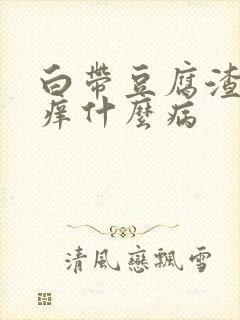 白帶豆腐渣
痒什麼病
清風戀飄雪